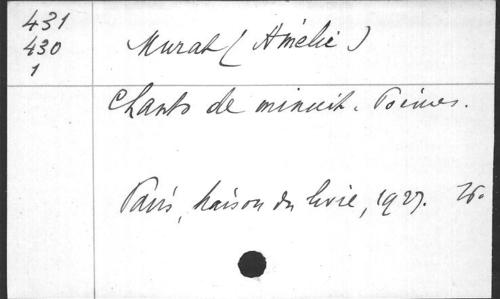 431
430
1
Murat (Amélie)
Chants de minuit. Poèmes.
Paris, Maison du livre, 1927.